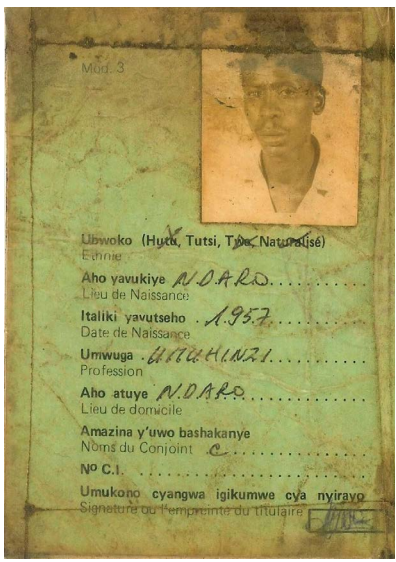 Mod. 3
Ubwoko (Hutu, Tutsi, Twa, Naturalisé)
Ethnie
Aho yavukiye NDARO
Lieu de Naissance
Italiki yavutseho 1957
Date de Naissance
Umwuga UMUHINZI
Profession
Aho atuye NDARO
Lieu de domicile
Amazina y'uwo bashakanye
Noms du Conjoint C
Nº C.I.
Umukono cyangwa igikumwe cya nyirayo
Signature ou l'empreinte du titulaire